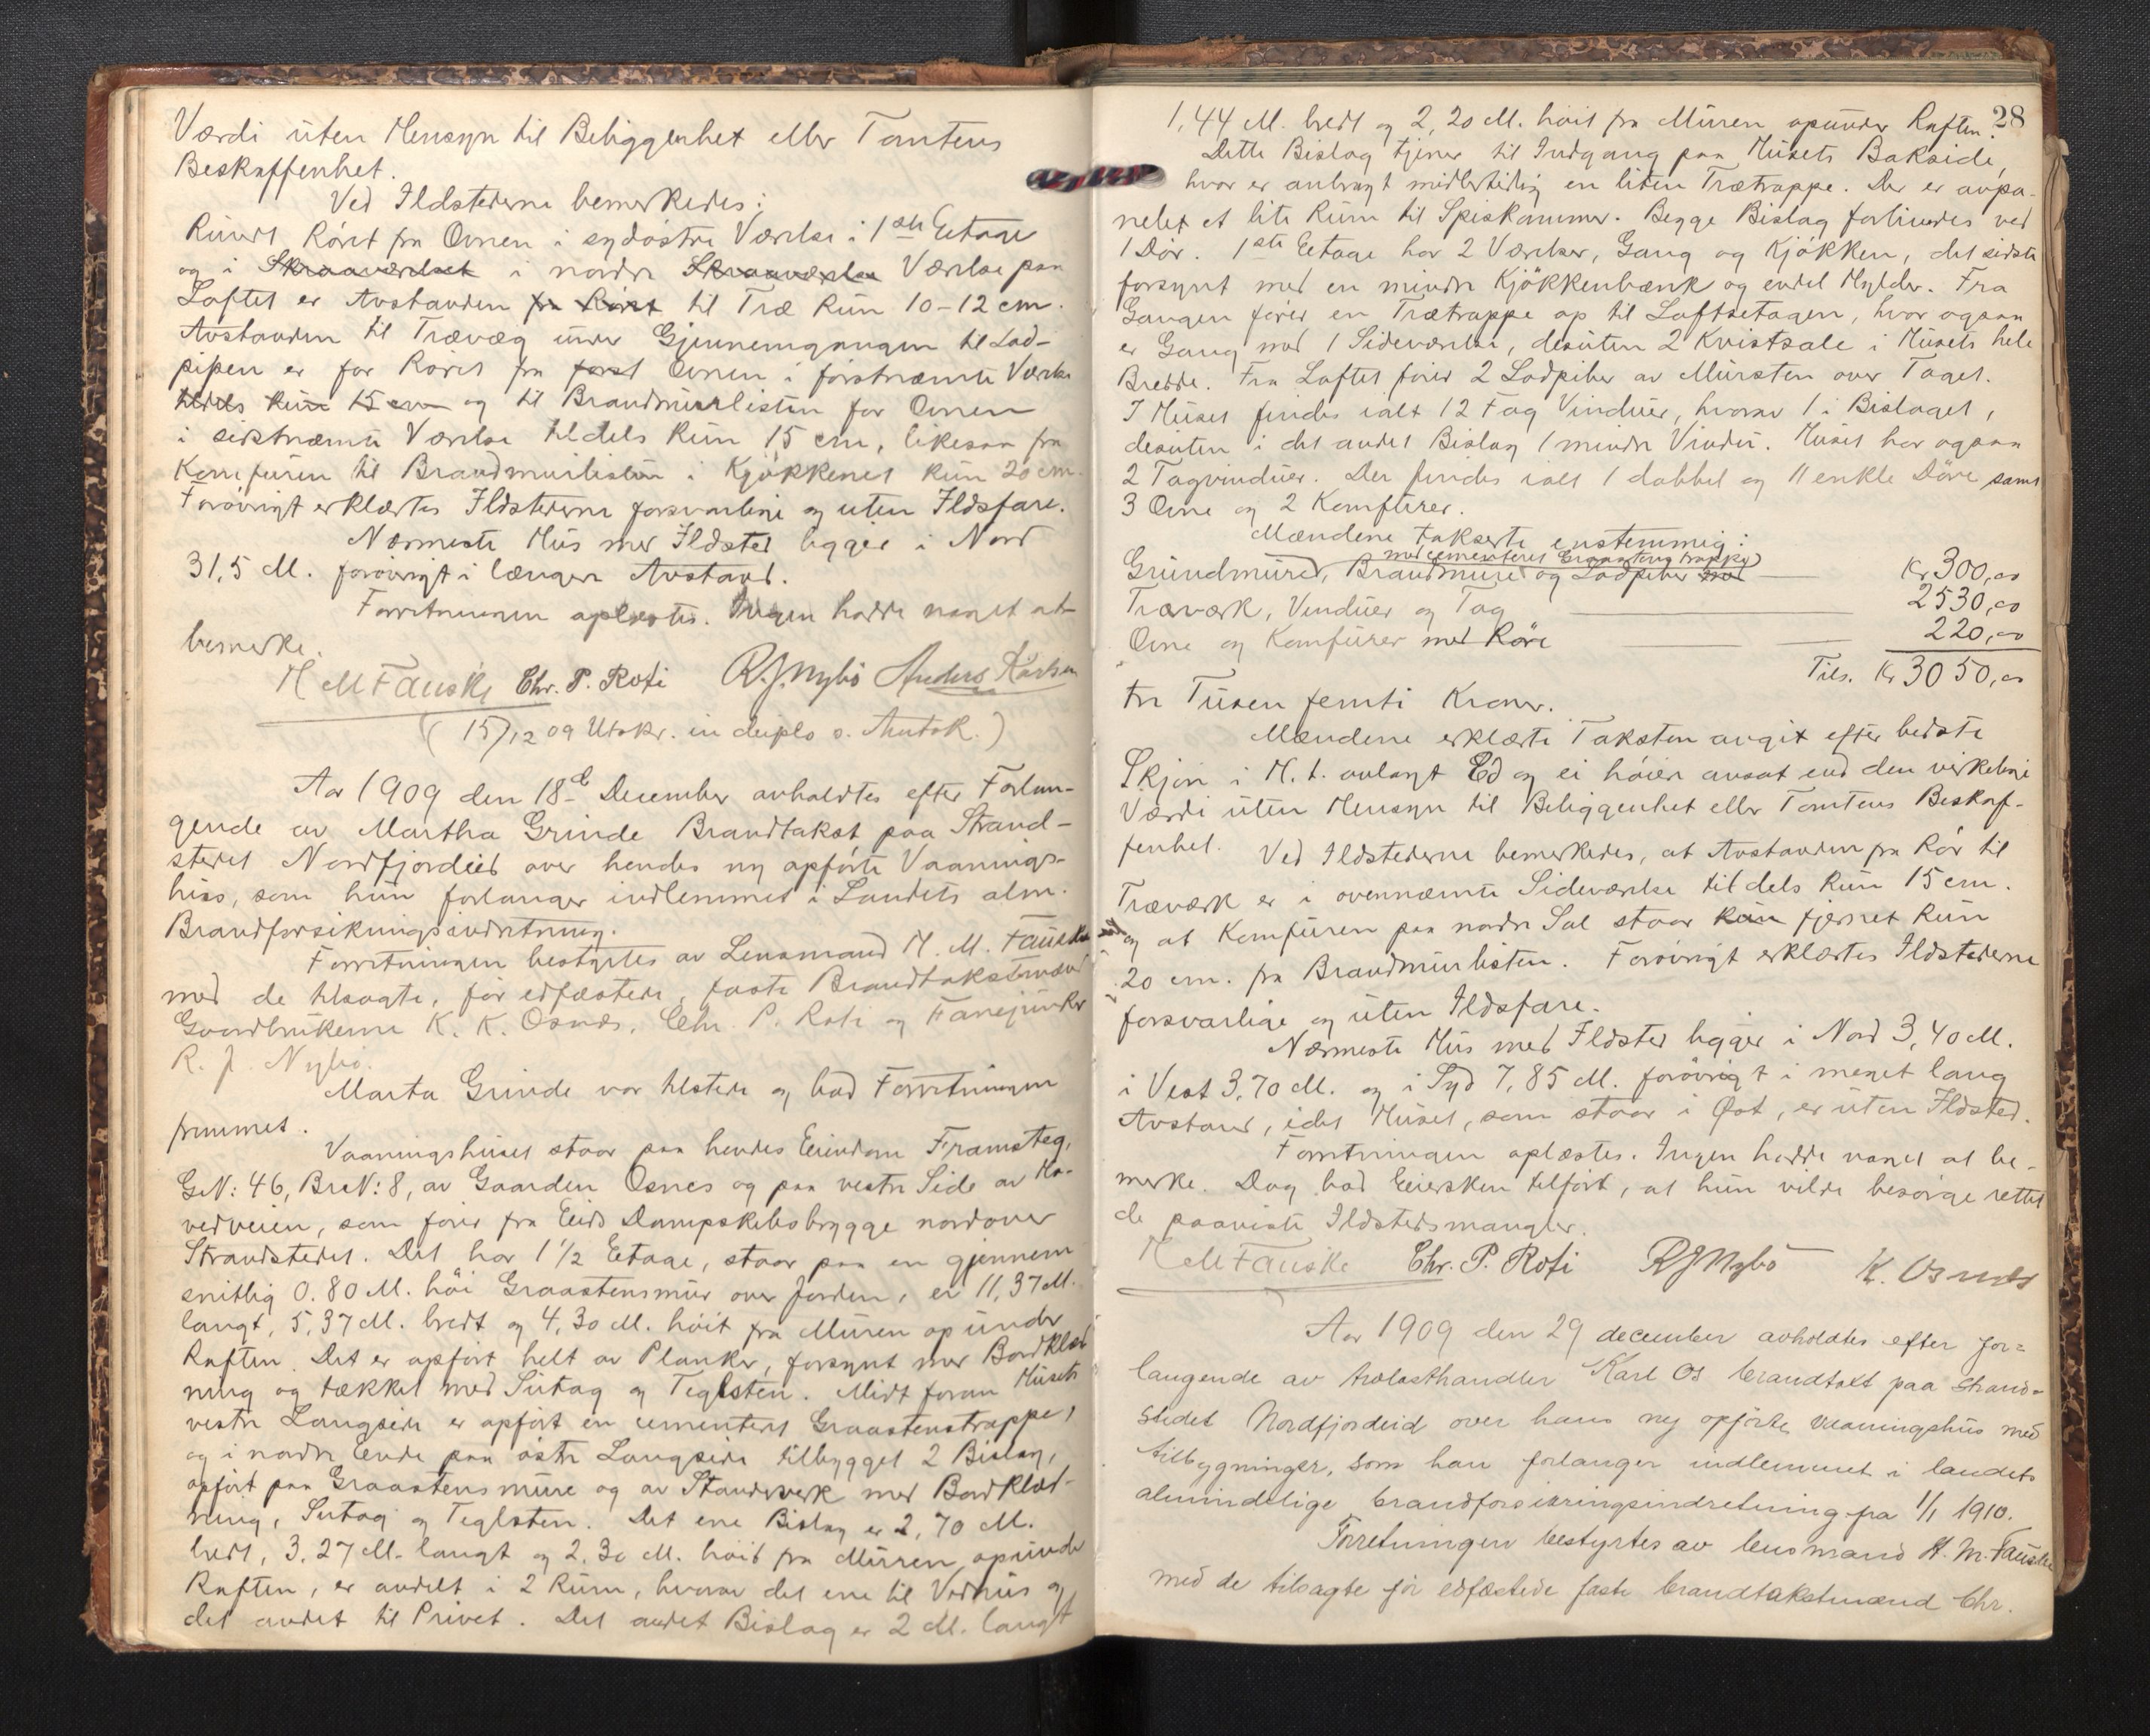 Værdi uten Hensyn til Beliggenhet eller Tomtens
Beskaffenhet.
Ved Ildstederne bemerkedes:
Rundt Røret fra Ovnen i sydøstre Værelse i 1ste Eetage
og i Skraaværelset i nordre Skraaværelse Værelse paa
Loftet er Avstanden fra Røret til Træ kun 10-12 cm.
Avstanden til Trævæg under Gjennemgangen til Lod-
pipen er for Røret fra først Ovnen i førstnæmte Værelse
tildels kun 15 cm og til Brandmurlisten for Ovnen
i sistnæmte Værelse tildels kun 15 cm, likesaa fra
Komfuren til Brandmurlisten i Kjøkkenet kun 20 cm.
Forøvrigt erklærtes Ildstederne forsvarlige og uten Ildsfare.
Nærmeste Hus med Ildsted ligger i Nord
31,5 M. forøvrigt i længere Avstand.
Forretningen oplæstes. Ingen hadde noget at
bemerke.
H M Fauske Chr. P. Roti R. J. Nybö Anders Karlsen
(15/12 09 Utskr. in duplo s. Amtsk.)
Aar 1909 den 18de December avholdtes efter Forlan-
gende av Martha Grinde Brandtakst paa Strand-
stedet Nordfjordeid over hendes ny opførte Vaanings-
hus, som hun forlanger indlemmet i Landets alm.
Brandforsikringsindretning.
Forretningen bestyrtes av Lensmand H. M. Fauske
med de tilsagte, før edfæstede, faste Brandtakstmænd
Gaardbrukerne K. K. Osnes, Chr. P. Roti og Fanejunker
R. J. Nybø.
Marta Grinde var tilstede og bad Forretningen
fremmet.
Vaaningshuset staar paa hendes Eiendom Framsteg,
G.N: 46, Br.N: 8, av Gaarden Osnes og paa vestre Side av Ho-
vedveien, som fører fra Eids Dampskibsbrygge nordover
Strandstedet. Det har 1 1/2 Eetage, staar paa en gjennem
snitlig 0.80 M. høi Graastensmur over Jorden, er 11,37 M.
langt, 5,37 M. bredt og 4,30 M. høit fra Muren op under
Raften. Det er opført helt av Planker, forsynt med Bordklæd
ning og tækket med Sutag og Teglsten. Midt foran Husets
vestre Langside er opført en cementert Graastenstrappe,
og i nordre Ende paa østre Langside tilbygget 2 Bislag,
opført paa Graastensmure og av Standerverk med Bordklæd-
ning, Sutag og Teglsten. Det ene Bislag er 2,70 M.
bredt, 3,27 M. langt og 2,30 M. høit fra Muren op under
Raften, er avdelt i 2 Rum, hvorav det ene til Vedhus og
det andet til Privet. Det andet Bislag er 2 M. langt
28
1,44 M. bredt og 2,20 M. høit fra Muren opunder Raften.
Dette Bislag tjener til Indgang paa Husets Bakside,
hvor er anbragt midlertidig en liten Trætrappe. Der er avpa-
nelet et lite Rum til Spiskammer. Begge Bislag forbindes ved
1 Dør. 1ste Eetage har 2 Værelser, Gang og Kjøkken, det sidste
forsynt med en mindre Kjøkkenbænk og endel Hylder. Fra
Gangen fører en Trætrappe op til Loftsetagen, hvor ogsaa
er Gang med 1 Sideværelse, desuten 2 Kvistsale i Husets hele
Bredde. Fra Loftet fører 2 Lodpiber av Mursten over Taget.
I Huset findes ialt 12 Fag Vinduer, hvorav 1 i Bislaget,
desuten i det andet Bislag 1 mindre Vindu. Huset har ogsaa
2 Tagvinduer. Der findes ialt 1 dobbel og 11 enkle Døre samt
3 Ovne og 2 Komfurer.
Mændene taksérte enstemmig:
med cementeret Graastenstrappe
Grundmured, Brandmure og Lodpiber med Kr 300,00
Træværk, Vinduer og Tag 2530,00
Ovne og Komfurer med Røre 220,00
Tils. Kr 3050,00
tre Tusen femti Kroner.
Mændene erklærte Taksten avgit efter bedste
Skjøn i H. t. avlagt Ed og ei høiere ansat end den virkelige
Værdi uten Hensyn til Beliggenhet eller Tomtens Beskaf-
fenhet. Ved Ildstederne bemerkedes, at Avstanden fra Rør til
Træværk er i ovennæmte Sideværelse tildels kun 15 cm.
og at Komfuren paa nordre Sal staar kun fjernet kun
20 cm. fra Brandmurlisten. Forøvrigt erklærtes Ildstederne
forsvarlige og uten Ildsfare.
Nærmeste Hus med Ildsted ligger i Nord 3,40 M.
i Vest 3,70 M. og i Syd 7,85 M. forøvrigt i meget lang
Avstand, idet Huset, som staar i Øst, er uten Ildsted.
Forretningen oplæstes. Ingen hadde noget at be-
merke. Dog bad Eiersken tilført, at hun vilde besørge rettet
de paaviste Ildstedsmangler.
H M Fauske Chr. P. Roti R J Nybö K. Osnes
Aar 1909 den 29 december avholdtes efter for=
langende av trælasthandler Karl Os brandtakt paa strand=
stedet Nordfjordeid over hans ny opførte vaaningshus med
tilbygninger, som han forlanger indlemmet i landets
almindelige brandforsikringsindretning fra 1/1 1910.
Forretningen bestyrtes av lensmand H. M. Fauske
med de tilsagte før edfæstede faste brandtakstmænd Chr.